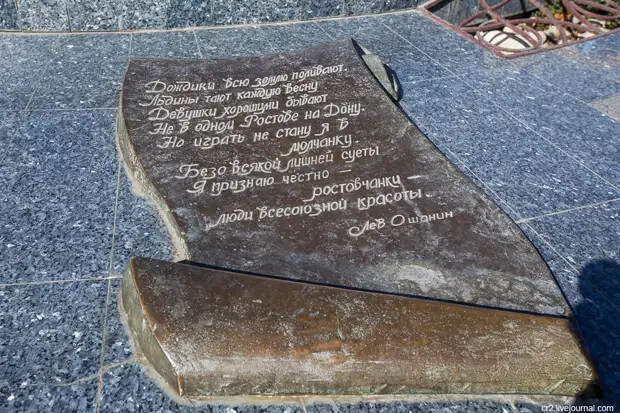 Дождики всю землю поливают.
Льдины тают каждую весну
Девушки хорошими бывают
Не в одном Ростове на Дону.
Но играть не стану я в
молчанку.
Безо всякой лишней суеты
Я признаю честно –
ростовчанки –
люди всесоюзной красоты.
Лев Ошанин
cr2.livejournal.com